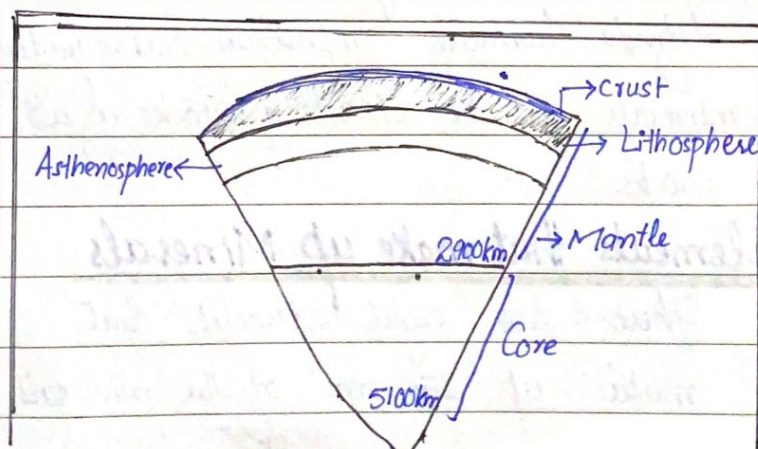 Crust
Lithosphere
Asthenosphere
2900km
Mantle
Core
5100km